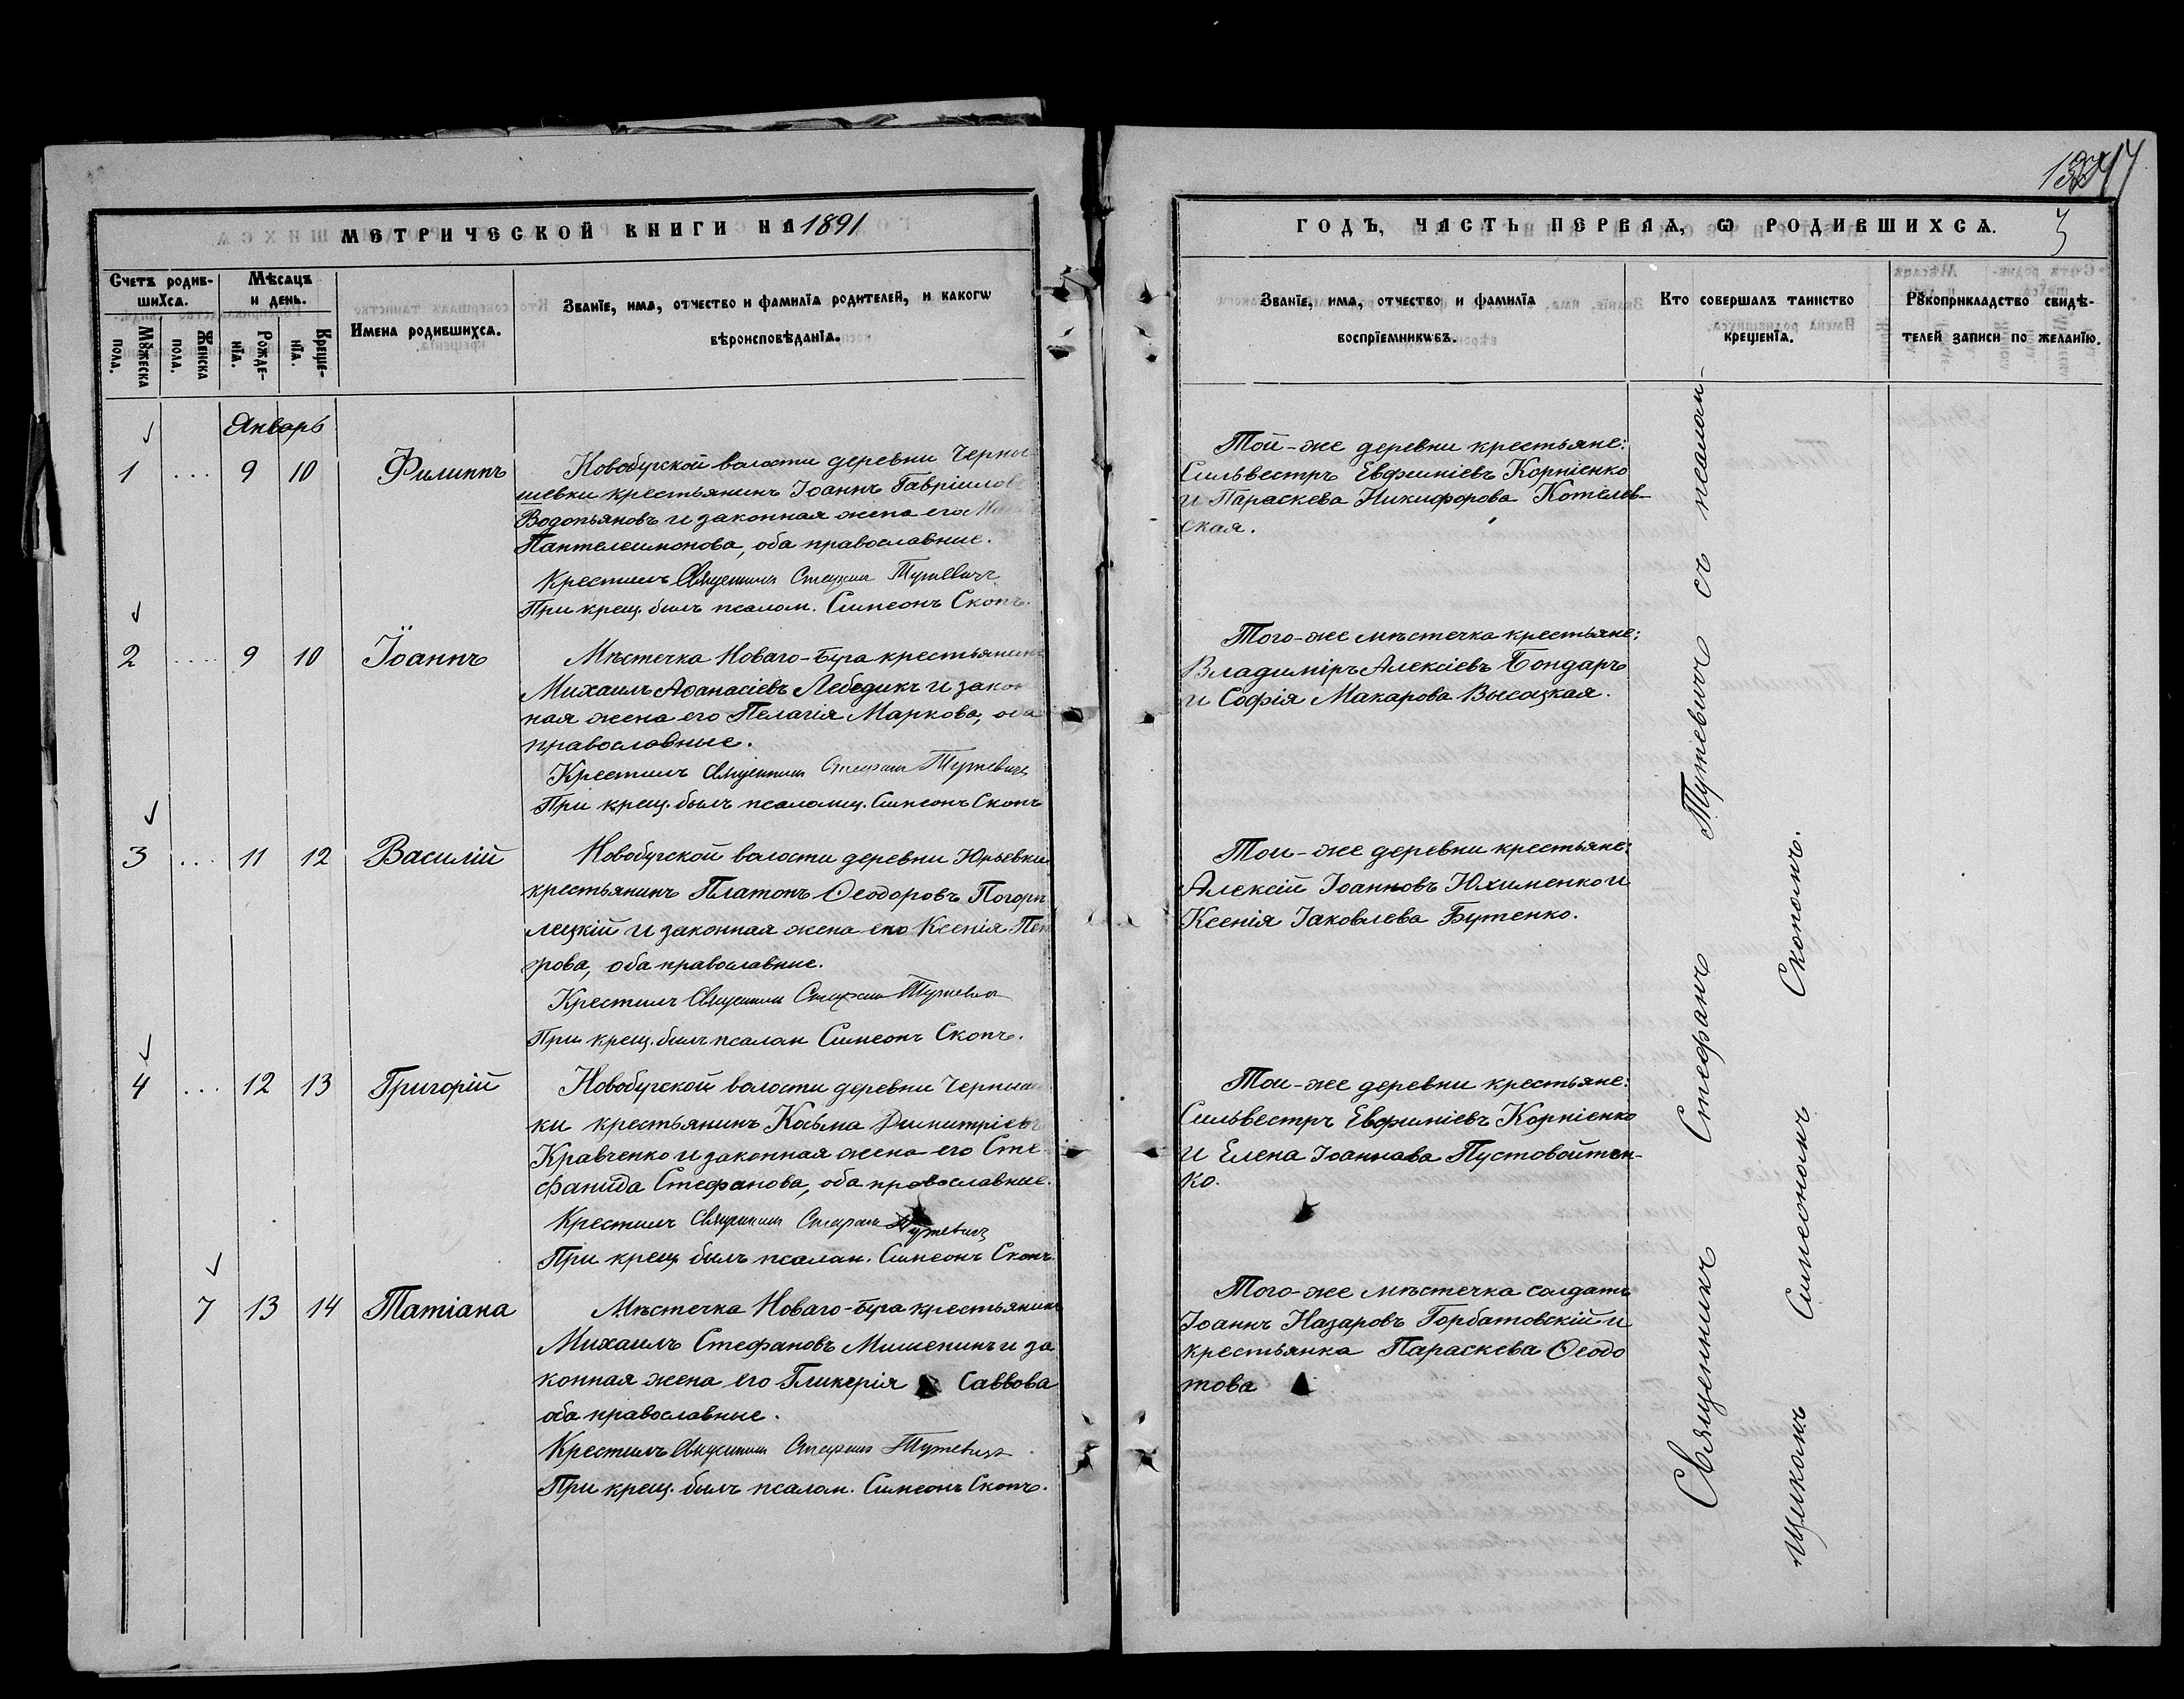 МЕТРИЧЕСКОЙ КНИГИ НА 1891
Счетъ родив-
шихсѧ.
Мѣсѧцъ
и день.
Мꙋжеска
пола.
Женска
пола.
Рожде-
нїѧ.
Креще-
нїѧ.
Имена родившихсѧ.
Званїе, имѧ, отчество и фамилїѧ родителей, и какогѡ
вѣроисповѣданїѧ.
Январь
1 ... 9 10 Филиппъ
Новобугской волости деревни Черны
шевки крестьянинъ Іоаннъ Гавріиловъ
Водопьяновъ и законная жена его
Пантелеимонова, оба православные.
Крестилъ Священникъ Стефанъ Тутевичъ
При крещ. былъ псалом. Симеонъ Скопъ.
2 .... 9 10 Іоаннъ
Мѣстечка Новаго-Буга крестьянинъ
Михаилъ Аѳанасіевъ Лебедикъ и закон
ная жена его Пелагія Маркова, оба
православные.
Крестилъ Священникъ Стефанъ Тутевичъ
При крещ. былъ псаломщ. Симеонъ Скопъ
3 ... 11 12 Василій
Новобугской волости деревни Юрьевки
крестьянинъ Платонъ Ѳеодоровъ Погорѣ
лецкій и законная жена его Ксенія Пет
рова, оба православные.
Крестилъ Священникъ Стефанъ Тутевичъ
При крещ. былъ псалом Симеонъ Скопъ.
4 ... 12 13 Григорій
Новобугской волости деревни Черныше
ки крестьянинъ Косьма Димитріевъ
Кравченко и законная жена его Сте
фанида Стефанова, оба православные.
Крестилъ Священникъ Стефанъ Тутевичъ
При крещ. былъ псалом. Симеонъ Скопъ.
7 13 14 Татіана
Мѣстечка Новаго-Буга крестьянинъ
Михаилъ Стефановъ Мишенинъ и за
конная жена его Гликерія Саввова
оба православные.
Крестилъ Священникъ Стефанъ Тутевичъ
При крещ. былъ псалом. Симеонъ Скопъ.
ГОДЪ, ЧАСТЬ ПЕРВАѦ, Ѡ РОДИВШИХСѦ.
Званїе, имѧ, отчество и фамилїѧ
воспрїемникѡвъ.
Кто совершалъ таинство
крещенїѧ.
Рꙋкоприкладство свидѣ-
телей записи по желанїю.
Той-же деревни крестьяне:
Сильвестръ Евфиміевъ Корніенко
и Параскева Никифорова Котелев-
ская.
Того-же мѣстечка крестьяне:
Владиміръ Алексіевъ Бондарь
и Софія Макарова Высоцкая.
Той-же деревни крестьяне:
Алексій Іоанновъ Юхименко и
Ксенія Іаковлева Бутенко.
Той-же деревни крестьяне:
Сильвестръ Евфиміевъ Корніенко
и Елена Іоаннова Пустовойтен-
ко.
Того-же мѣстечка солдатъ
Іоаннъ Назаровъ Горбатовскій и
крестьянка Параскева Ѳеодо
това
Священникъ Стефанъ Тутевичъ съ псалом-
щикомъ Симеономъ Скопомъ.